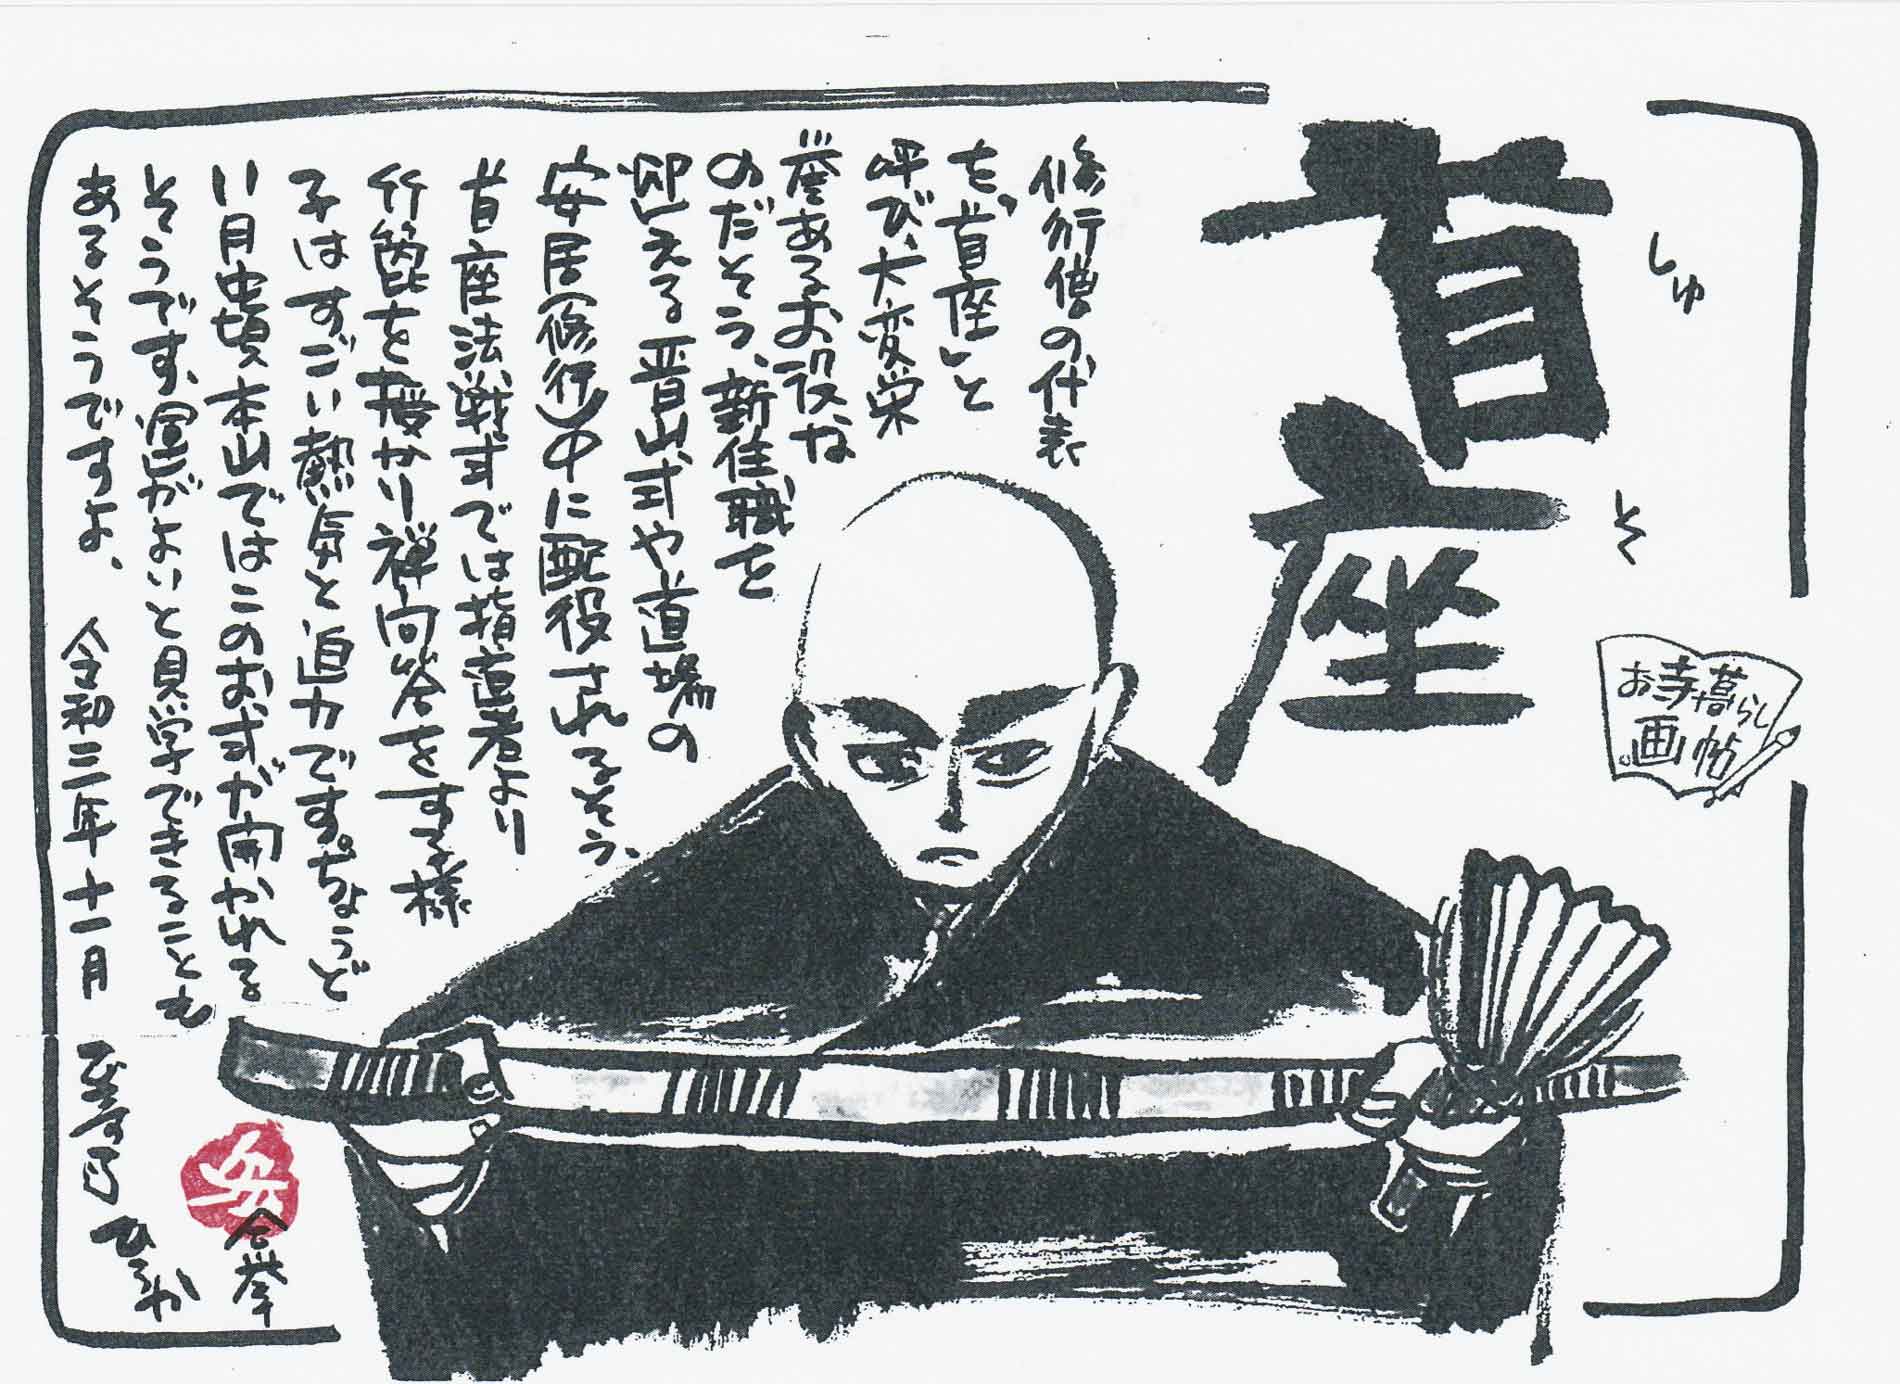 首座
しゅ
そ
お寺暮らし
画帖
修行僧の代表
を、"首座"と
呼び、大変栄
誉あるお役な
のだそう、新住職を
迎える晋山式や道場の
安居(修行)中に配役されるそう、
首座法戦式では指導者より
竹箆を授かり禅問答をする様
子はすごい熱気と迫力です。ちょうど
11月中頃、本山ではこのお式が開かれる
そうです、運がよいと見学できることも
あるそうですよ、
令和三年十一月
ひさ
合掌